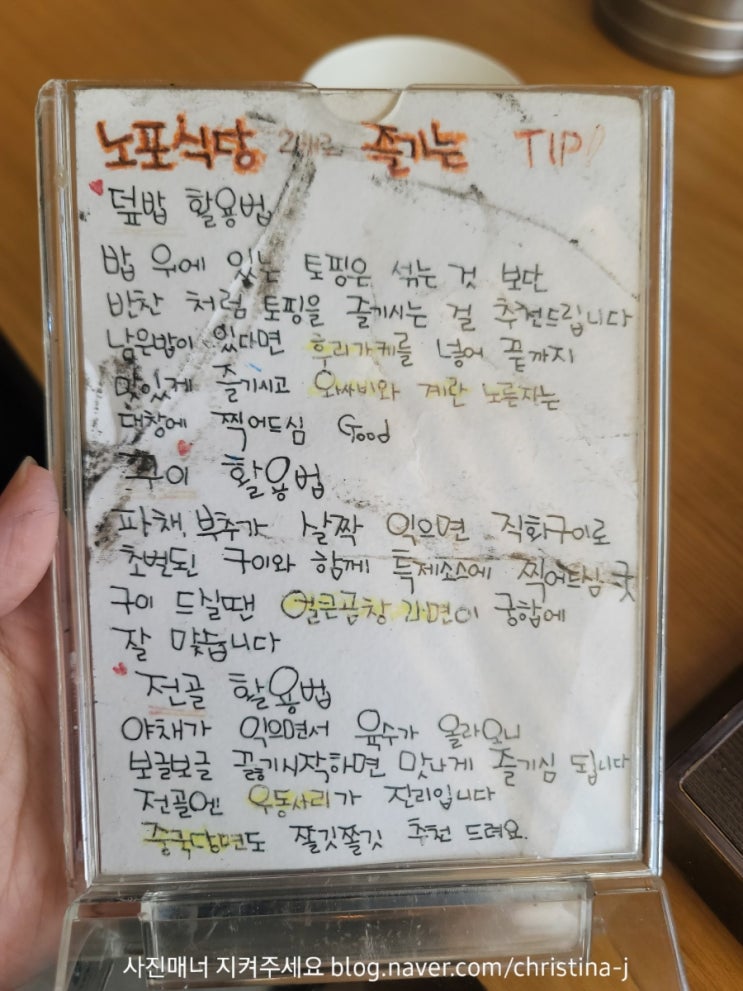 노포식당 제대로 즐기는 TIP!
덮밥 활용법
밥 위에 있는 토핑은 섞는 것 보단
반찬 처럼 토핑을 즐기시는 걸 추천드립니다
남은밥이 있다면 후리가케를 넣어 끝까지
맛있게 즐기시고 와사비와 계란 노른자는
대창에 찍어드심 Good
구이 활용법
파채, 부추가 살짝 익으면 직화구이로
초벌된 구이와 함께 특제소스에 찍어드심 굿
구이 드실땐 얼큰곱창라면이 궁합에
잘 맞습니다
전골 활용법
야채가 익으면서 육수가 올라오니
보글보글 끓기시작하면 맛나게 즐기심 됩니다
전골엔 우동사리가 진리입니다
중국당면도 쫄깃쫄깃 추천 드려요.
사진매너 지켜주세요 blog.naver.com/christina-j